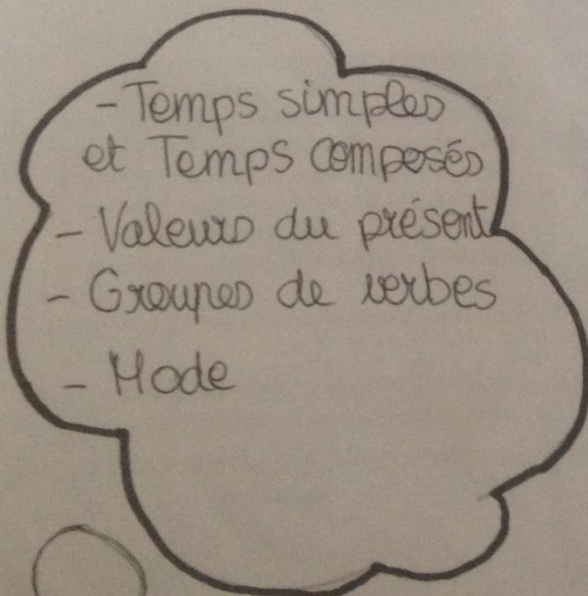 - Temps simples
et Temps composés
- Valeurs du présent
- Groupes de verbes
- Mode